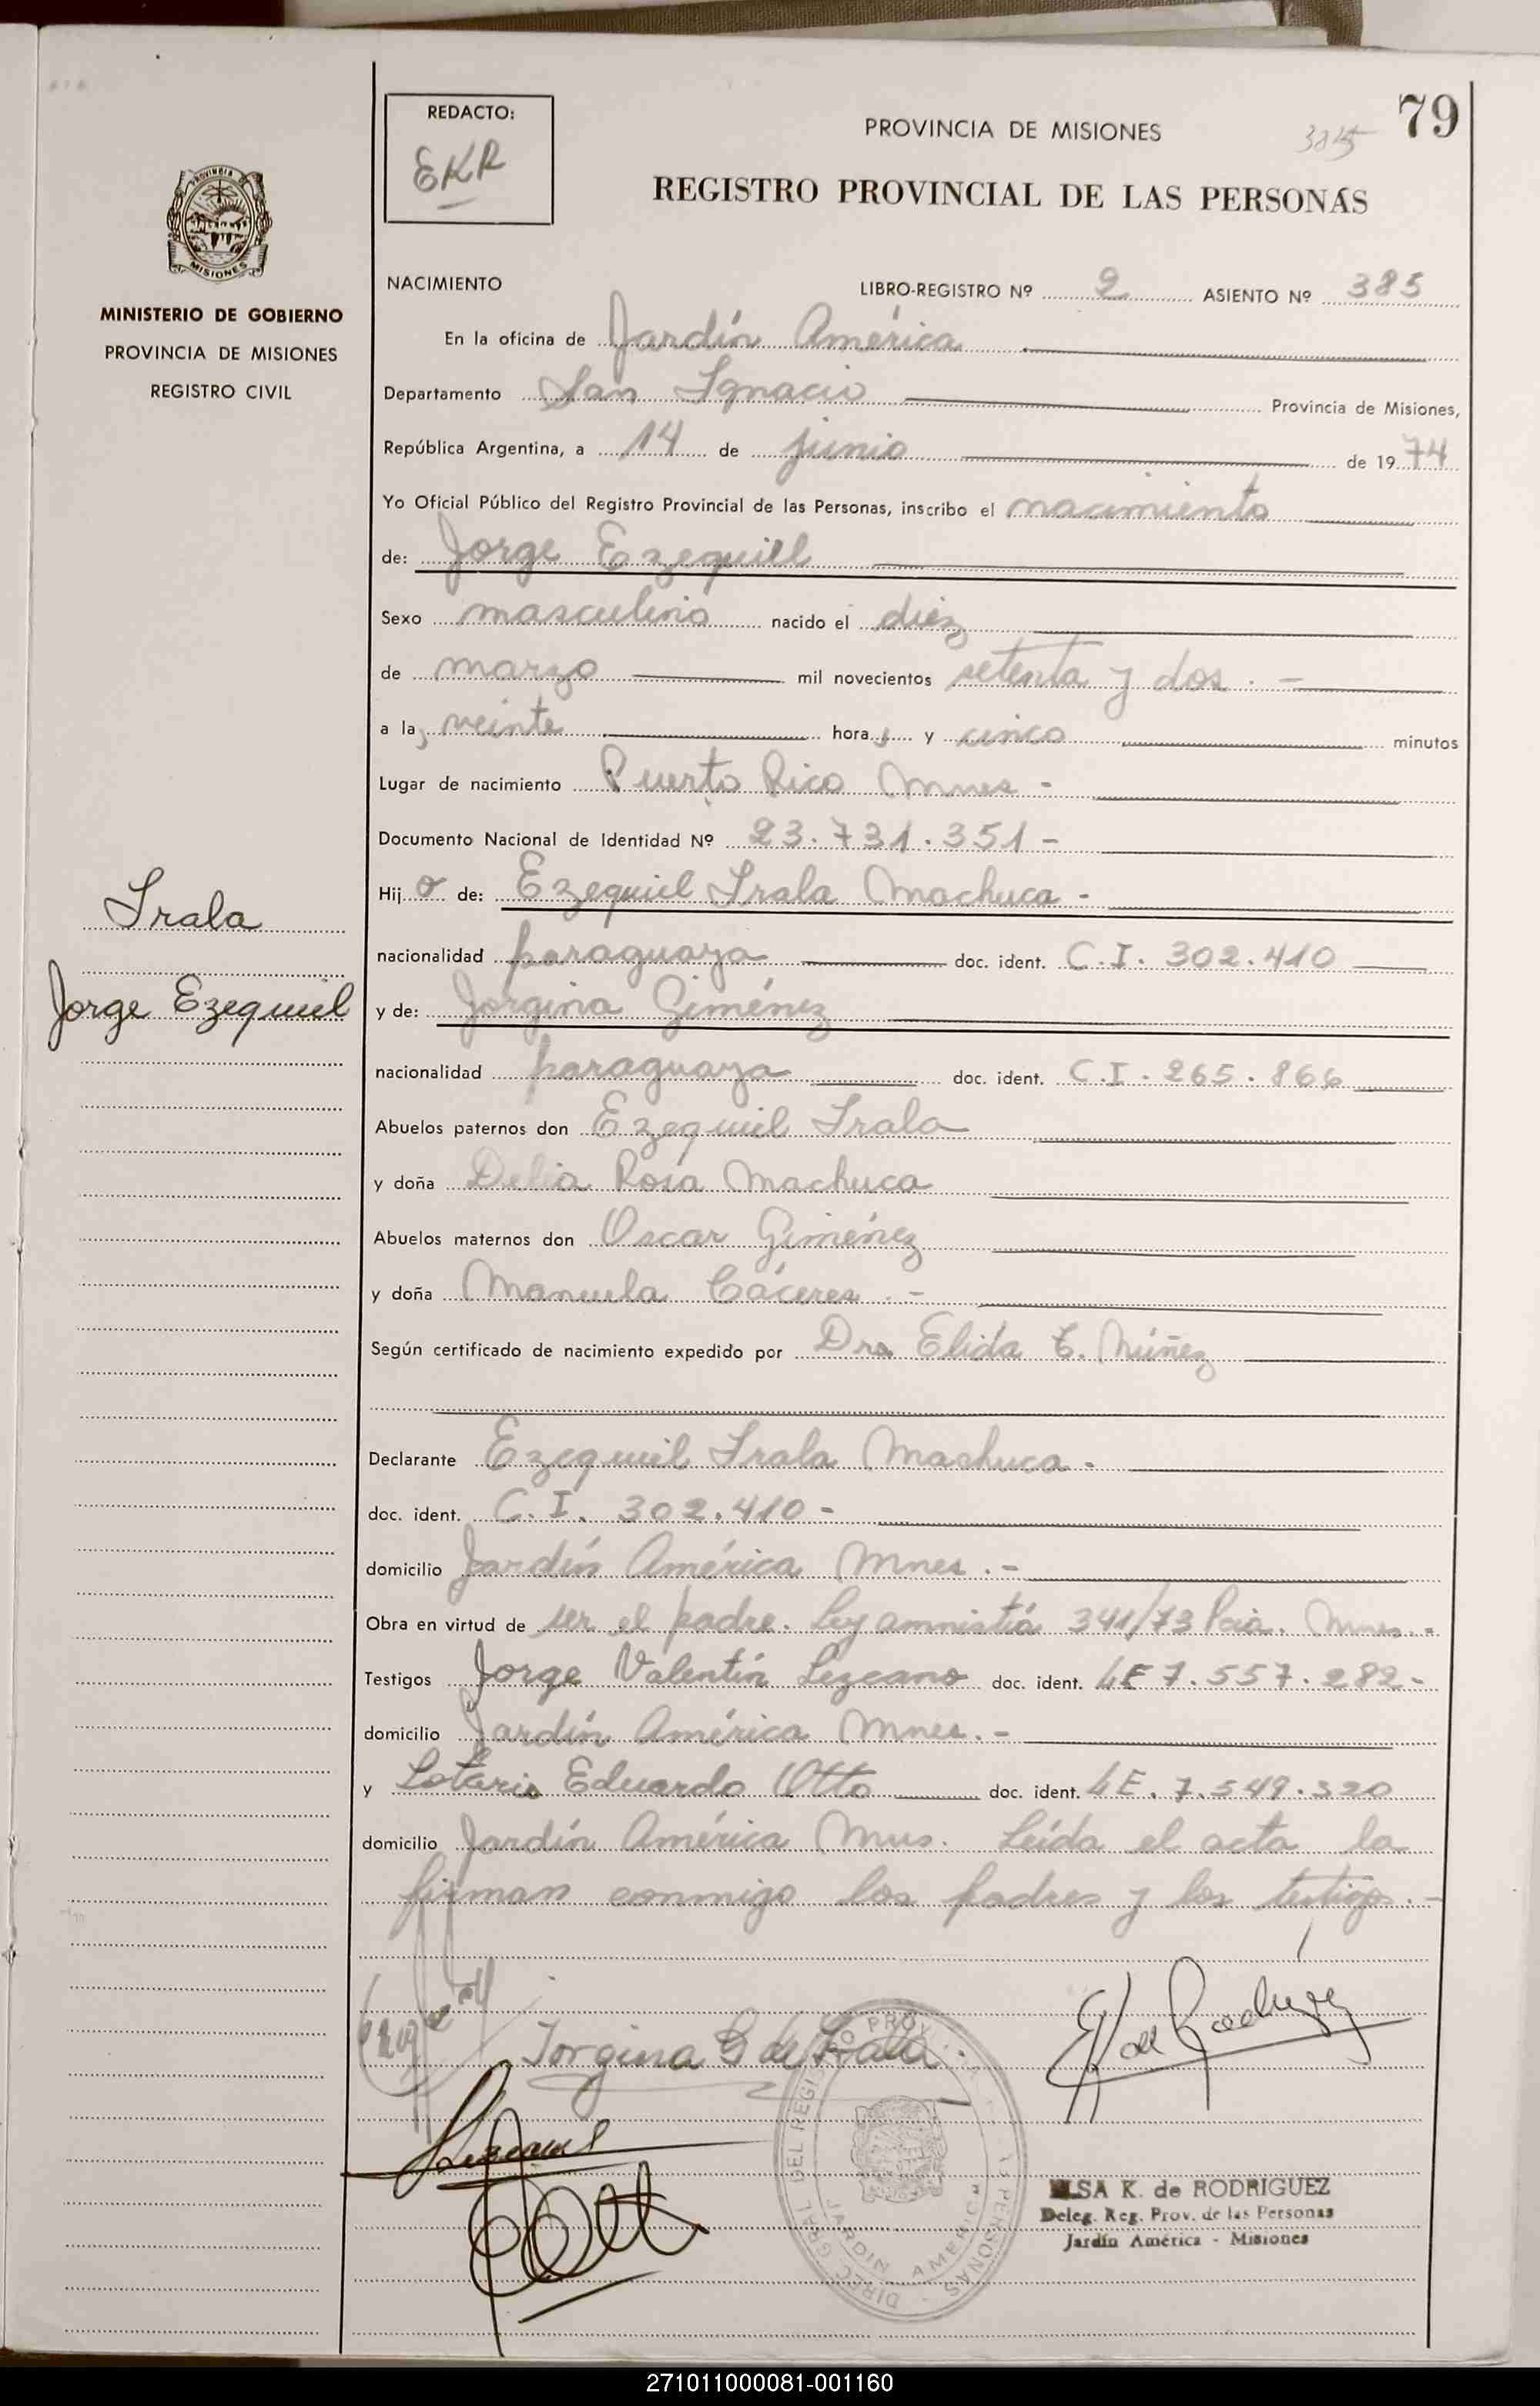 REDACTO:
EKR
79
PROVINCIA DE MISIONES
REGISTRO PROVINCIAL DE LAS PERSONAS
MISIONES
MINISTERIO DE GOBIERNO
PROVINCIA DE MISIONES
REGISTRO CIVIL
NACIMIENTO LIBRO-REGISTRO Nº 2 ASIENTO Nº 385
En la oficina de Jardín América
Departamento San Ignacio Provincia de Misiones,
República Argentina, a 14 de junio de 1974
Yo Oficial Público del Registro Provincial de las Personas, inscribo el nacimiento
de: Jorge Ezequiel
Sexo masculino nacido el diez
de marzo mil novecientos setenta y dos.-
a las veinte horas y cinco minutos
Lugar de nacimiento Puerto Rico Mnes-
Documento Nacional de Identidad Nº 23.731.351-
Hijo de: Ezequiel Irala Machuca-
Irala
nacionalidad paraguaya doc. ident. C.I. 302.410
Jorge Ezequiel
y de: Jorgina Giménez
nacionalidad paraguaya doc. ident. C.I. 265.866
Abuelos paternos don Ezequiel Irala
y doña Delia Rosa Machuca
Abuelos maternos don Oscar Giménez
y doña Manuela Cáceres.-
Según certificado de nacimiento expedido por Dra Elida E. Núñez
Declarante Ezequiel Irala Machuca-
doc. ident. C.I. 302.410-
domicilio Jardín América Mnes.-
Obra en virtud de ser el padre. Ley amnistía 341/73 Pcia. Mnes.-
Testigos Jorge Valentín Lezcano doc. ident. LE 7.557.282-
domicilio Jardín América Mnes.-
y Lotario Eduardo Otto doc. ident. LE. 7.549.320
domicilio Jardín América Mns. Leída el acta la
firman conmigo los padres y los testigos.-
Jorgina G de Irala
ELSA K. de RODRIGUEZ
Deleg. Reg. Prov. de las Personas
Jardín América - Misiones
JARDIN AMERICA
271011000081-001160